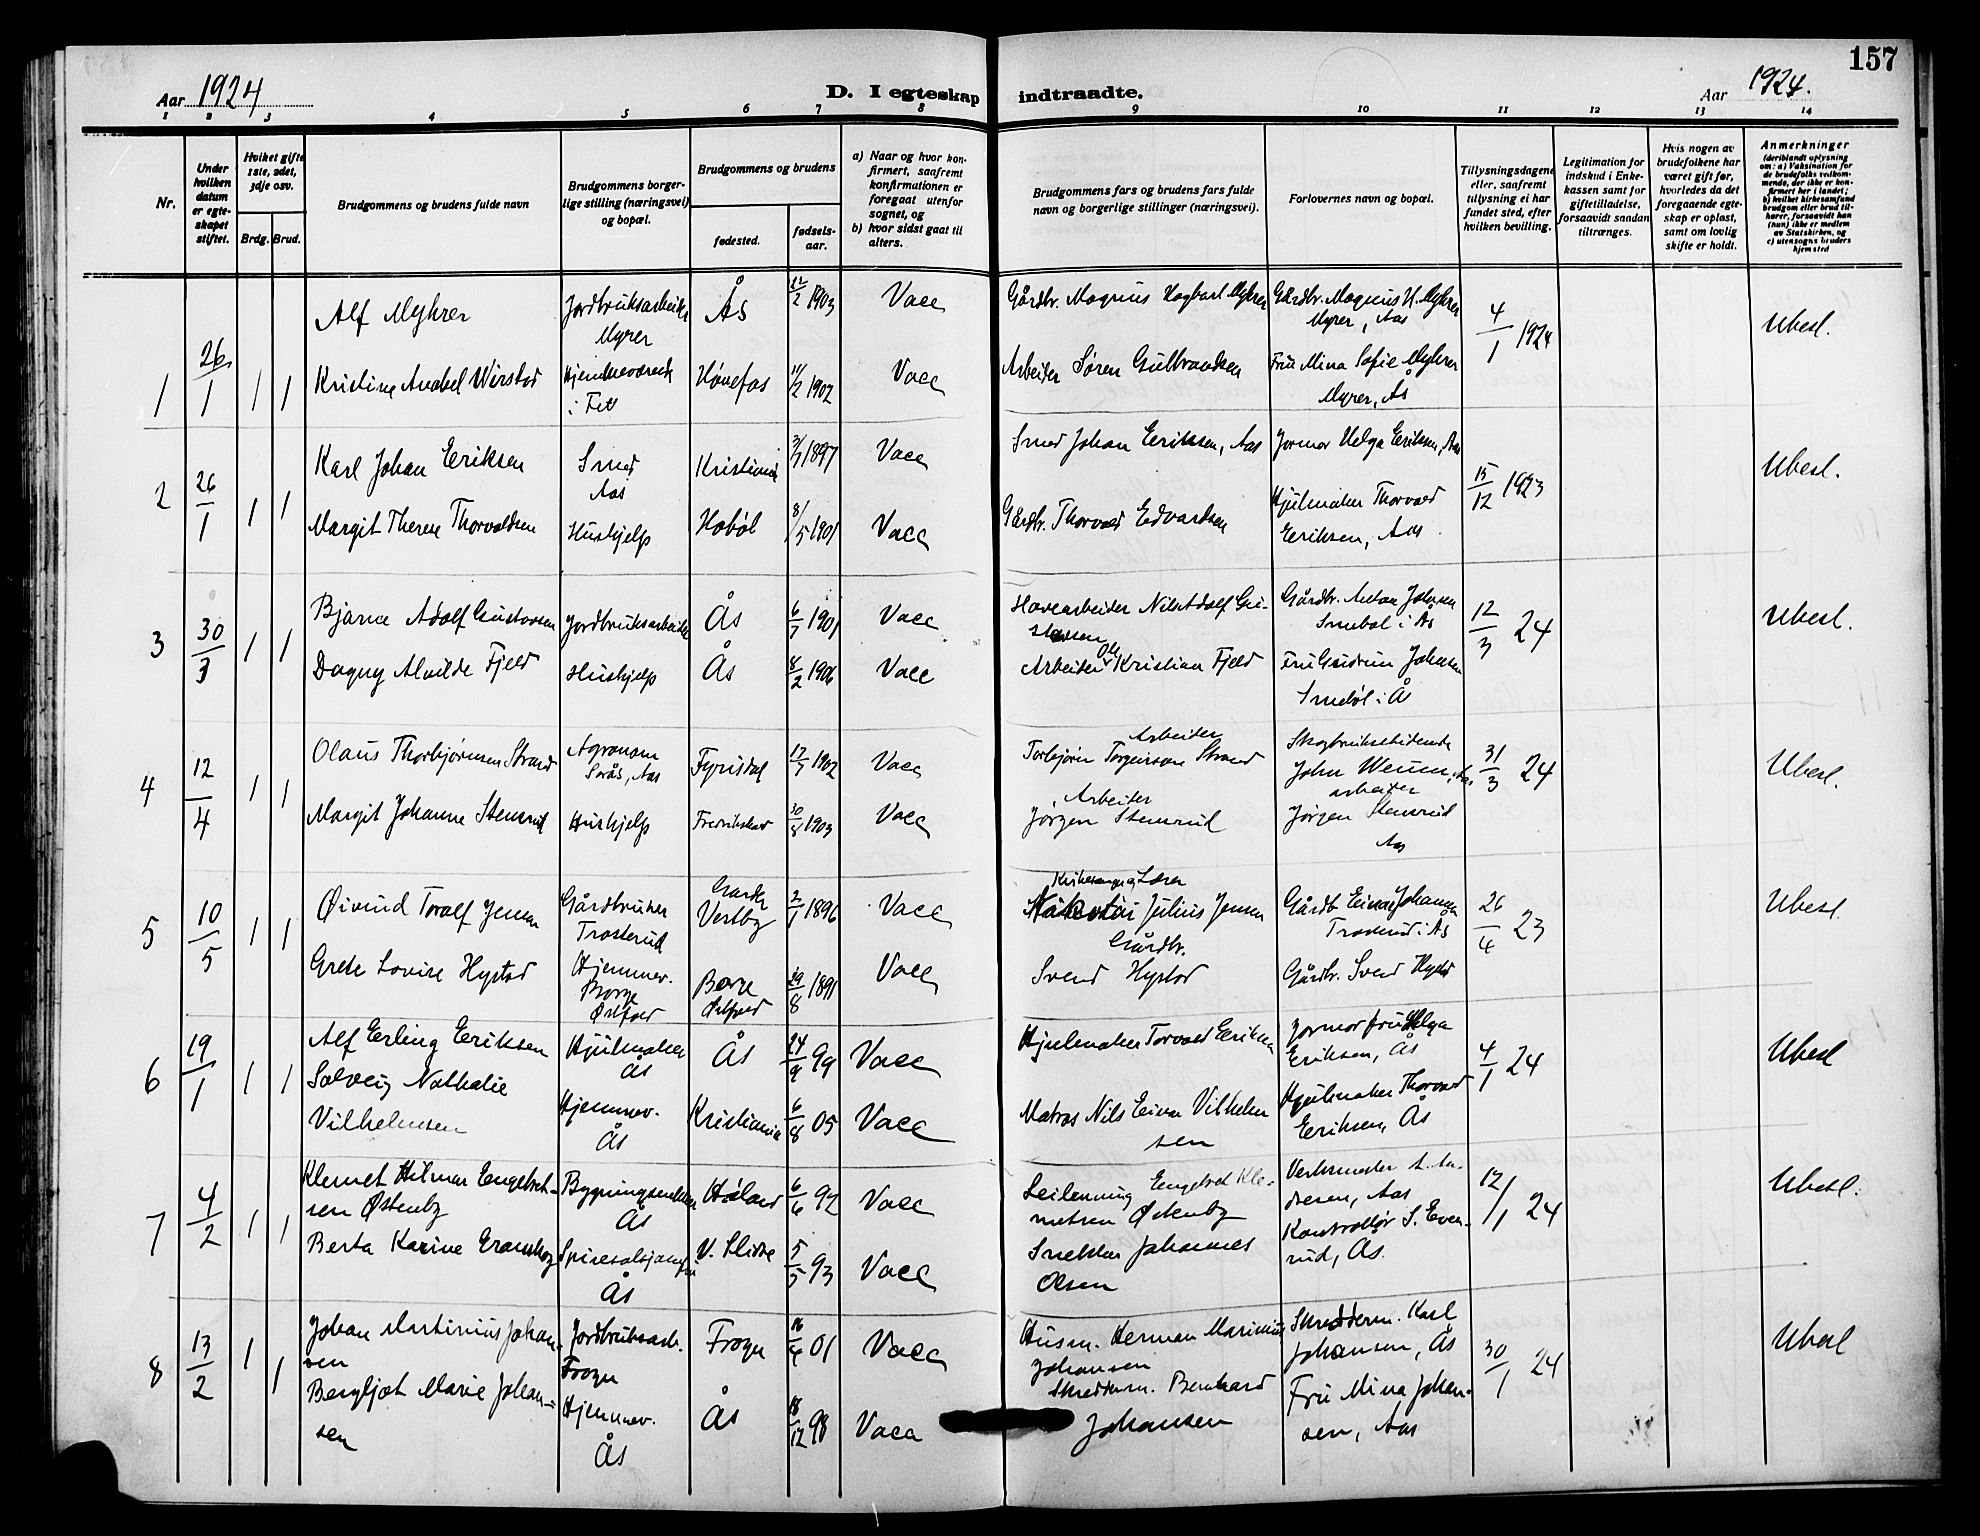 157
Aar 1924
D. I egteskap indtraadte.
Aar 1924.
1 2 3 4 5 6 7 8 9 10 11 12 13 14
Nr.
Under hvilken datum er egteskapet stiftet.
Hvilket gifte 1ste, 2det, 3dje osv.
Brdg. Brud.
Brudgommens og brudens fulde navn
Brudgommens borgerlige stilling (næringsvei) og bopæl.
Brudgommens og brudens
fødested.
fødselsaar.
a) Naar og hvor konfirmert, saafremt konfirmationen er foregaat utenfor sognet, og
b) hvor sidst gaat til alters.
Brudgommens fars og brudens fars fulde navn og borgerlige stillinger (næringsvei).
Forlovernes navn og bopæl.
Tillysningsdagene eller, saafremt tillysning ei har fundet sted, efter hvilken bevilling.
Legitimation for indskud i Enkekassen samt for giftetilladelse, forsaavidt saadan tiltrænges.
Hvis nogen av brudefolkene har været gift før, hvorledes da det foregaaende egteskap er opløst, samt om lovlig skifte er holdt.
Anmerkninger
(deriblandt oplysning om: a) Vaksination for de brudefolks vedkommende, der ikke er konfirmert her i landet; b) hvilket kirkesamfund brudgom eller brud tilhører, forsaavidt han (hun) ikke er medlem av Statskirken, og c) utensogns bruders hjemsted
1 26/1 1 1
Alf Myhrer Jordbruksarbeider Myrer Ås 22/2 1903 Vacc Gårdbr. Magnus Hagbart Myhrer Gårdbr. Magnus H. Myhrer Myrer, Aas 4/1 1924 Ubesl.
Kristine Anabel Wirstad i Fet Hønefos 11/2 1902 Vacc Arbeider Søren Gulbrandsen Fru Mina Sofie Myhrer Myrer, Ås
2 26/1 1 1
Karl Johan Eriksen Smed Aas Kristiania 3/7 1897 Vacc Smed Johan Eriksen, Aas Jormor Helga Eriksen, Aas 15/12 1923 Ubesl.
Margit Therese Thorvaldsen Hushjelp Hobøl 8/5 1901 Vacc Gårdbr. Thorvald Edvardsen Hjulmaker Thorvald Eriksen, Aas
3 30/3 1 1
Bjarne Adolf Gustavsen Jordbruksarbeider Ås 6/7 1901 Vacc Havearbeider Nils Adolf Gustavsen Gårdbr. Anton Johnsen i Ås 12/3 24 Ubesl.
Dagny Alvilde Fjeld Hushjelp Ås 8/2 1906 Vacc Arbeider Ole Kristian Fjeld Fru Gudrun Johnsen i Ås
4 12/4 1 1
Olaus Thorbjørnsen Strand Agronom Sørås, Aas Fyrisdal 17/7 1902 Vacc Arbeider Torbjørn Torgeirson Strand Skogbruksstuderende John Wennes, Aas 31/3 24 Ubesl.
Margit Johanne Stensrud Hushjelp Fredrikstad 30/8 1903 Vacc Arbeider Jørgen Stensrud arbeider Jørgen Stensrud Aas
5 10/5 1 1
Øivind Toralf Jensen Gårdbruker Trosterud Garder Vestby 2/1 1896 Vacc Kirkesanger og Lærer Julius Jensen Gårdb. Einar Johansen Trosterud i Ås 26/4 23 Ubesl.
Grete Lovise Hystad Hjemmev. Borge Østfold Borge Østfold 29/8 1891 Vacc Gårdbr. Svend Hystad Gårdbr. Svend Hystad
6 19/1 1 1
Alf Erling Eriksen Hjulmaker Ås Ås 24/9 99 Vacc Hjulmaker Torvald Eriksen Jormor fru Helga Eriksen, Ås 4/1 24 Ubesl
Solveig Nathalie Vilhelmsen Hjemmev. Ås Kristiania 6/8 05 Vacc Matros Nils Einar Vilhelmsen Hjulmaker Thorvald Eriksen, Ås
7 4/2 1 1
Klemet Hilmar Engebretsen Østenby Ås Høland 6/6 92 Vacc Leilending Engebret Klemetsen Østenby Verksmester Andresen, Aas 12/1 24 Ubesl.
Berta Karine Ås V. Slidre 5/5 93 Vacc Snekker Johannes Olsen Kontrollør S. Evenrud, Ås.
8 13/2 1 1
Johan Martinius Johansen Jordbruksarb. Frogn Frogn 16/4 01 Vacc Husm. Herman Marinius Johansen Skredderm. Karl Johansen, Ås 30/1 24 Ubesl
Bergljot Marie Johansen Hjemmev. Ås Ås 18/12 98 Vacc Skredderm. Bernhard Johansen Fru Mina Johansen, Aas